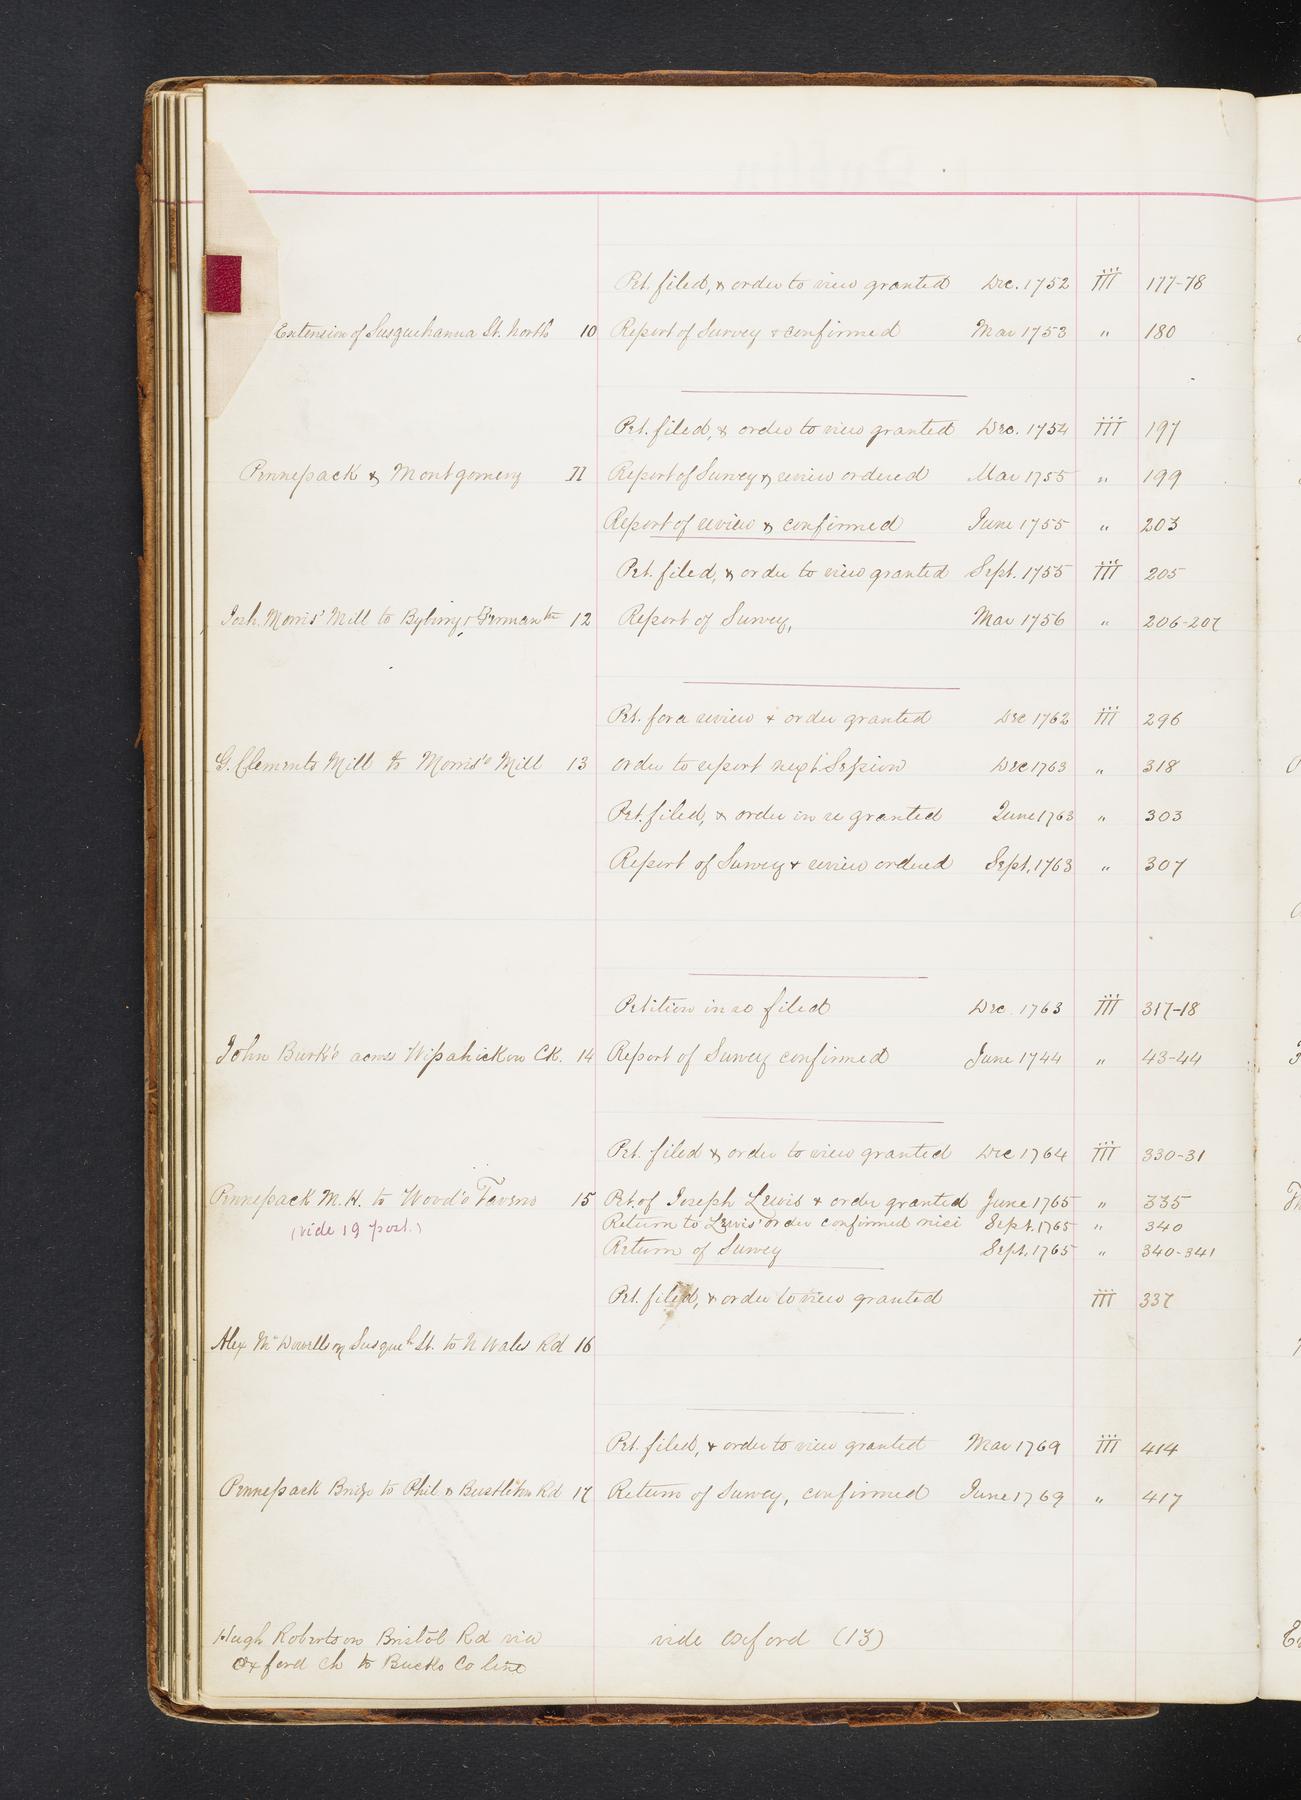 Pet. filed, & order to view granted Dec. 1752 iii 177-78
Extension of Susquehanna St. North 10 Report of Survey & confirmed Mar 1753 " 180
Pet. filed, & order to view granted Dec. 1754 iii 197
Pennepack & Montgomery 11 Report of Survey & review ordered Mar 1755 " 199
Report of review & confirmed June 1755 " 203
Pet. filed, & order to view granted Sept. 1755 iii 205
Josh. Morris' Mill to Byberry & Germantn 12 Report of Survey, Mar 1756 " 206-207
Pet. for a review & order granted Dec 1762 iii 296
G. Clements Mill to Morris's Mill 13 order to report next Session Dec 1763 " 318
Pet. filed, & order in re granted June 1763 " 303
Report of Survey & review ordered Sept. 1763 " 307
Petition in re filed Dec. 1763 iii 317-18
John Burk's across Wissahickon CK. 14 Report of Survey confirmed June 1744 " 43-44
Pet. filed & order to view granted Dec 1764 iii 330-31
Pennepack M. H. to Wood's Tavern 15 Pet. of Joseph Lewis & order granted June 1765 " 335
(vide 19 post.) Return to Lewis' order confirmed nisi Sept. 1765 " 340
Return of Survey Sept. 1765 " 340-341
Pet. filed, & order to view granted iii 337
Alex McDowells on Susqueh St. to N Wales Rd 16
Pet. filed, & order to view granted Mar 1769 iii 414
Pennepack Bridge to Phil & Bustleton Rd 17 Return of Survey, confirmed June 1769 " 417
Hugh Robertson Bristol Rd via vide Oxford (13)
Oxford Ch to Bucks Co line